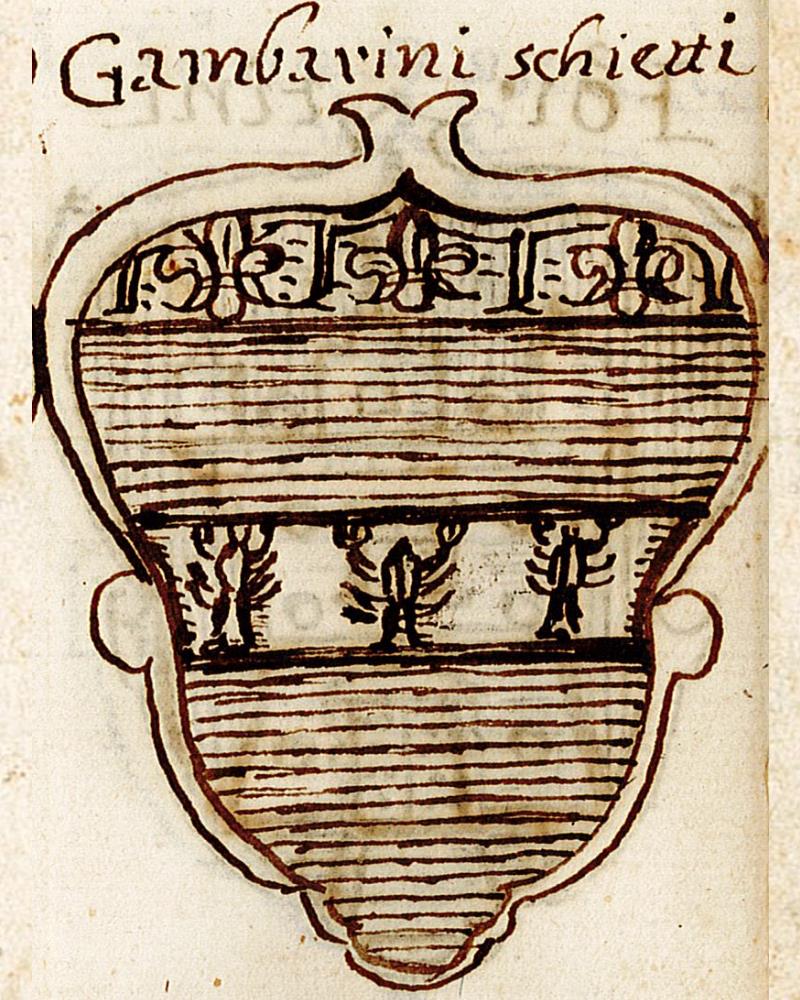 Gambarini schietti